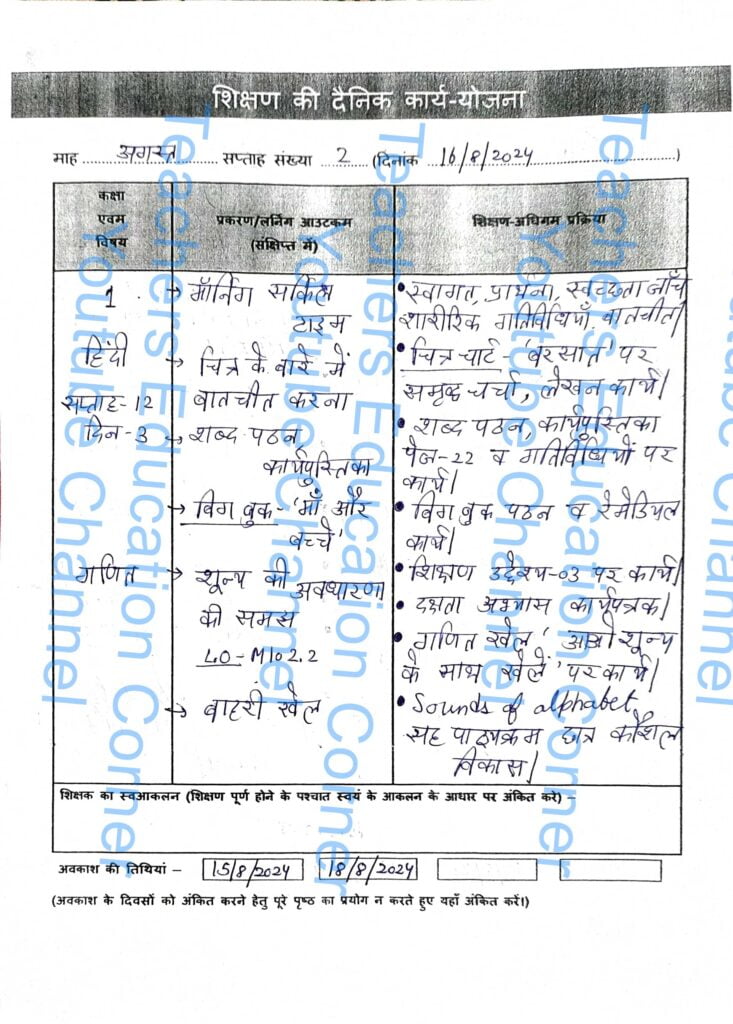 शिक्षण की दैनिक कार्य-योजना
माह ....अगस्त........ सप्ताह संख्या ...2.... (दिनांक ..16/8/2024..............................)
कक्षा
एवम
विषय
प्रकरण/लर्निंग आउटकम
(संक्षिप्त में)
शिक्षण-अधिगम प्रक्रिया
1
→ मॉर्निंग सर्किल
टाइम
• स्वागत, प्रार्थना, स्वच्छता जाँच
शारीरिक गतिविधियाँ, बातचीत।
हिंदी
सप्ताह-12
दिन-3
→ चित्र के बारे में
बातचीत करना
• चित्र चार्ट-'बरसात' पर
समृद्ध चर्चा, लेखन कार्य।
→ शब्द पठन,
कार्यपुस्तिका
• शब्द पठन, कार्यपुस्तिका
पेज-22 व गतिविधियों पर
कार्य।
→ बिग बुक-'माँ और
बच्चे'
• बिग बुक पठन व रेमेडियल
कार्य।
गणित
→ शून्य की अवधारणा
की समझ
LO-M102.2
• शिक्षण उद्देश्य-03 पर कार्य।
• दक्षता अभ्यास कार्यपत्रक।
• गणित खेल 'आओ शून्य
के साथ खेलें' पर कार्य।
→ बाहरी खेल
• Sounds of alphabet,
सह पाठ्यक्रम छात्र कौशल
विकास।
शिक्षक का स्वआकलन (शिक्षण पूर्ण होने के पश्चात स्वयं के आकलन के आधार पर अंकित करे) –
अवकाश की तिथियां – 15/8/2024 18/8/2024
(अवकाश के दिवसों को अंकित करने हेतु पूरे पृष्ठ का प्रयोग न करते हुए यहाँ अंकित करें।)
Teachers Education Corner
Youtube Channel
Teachers Education Corner
Youtube Channel
Teachers Education Corner
Youtube Channel
Teachers Education Corner